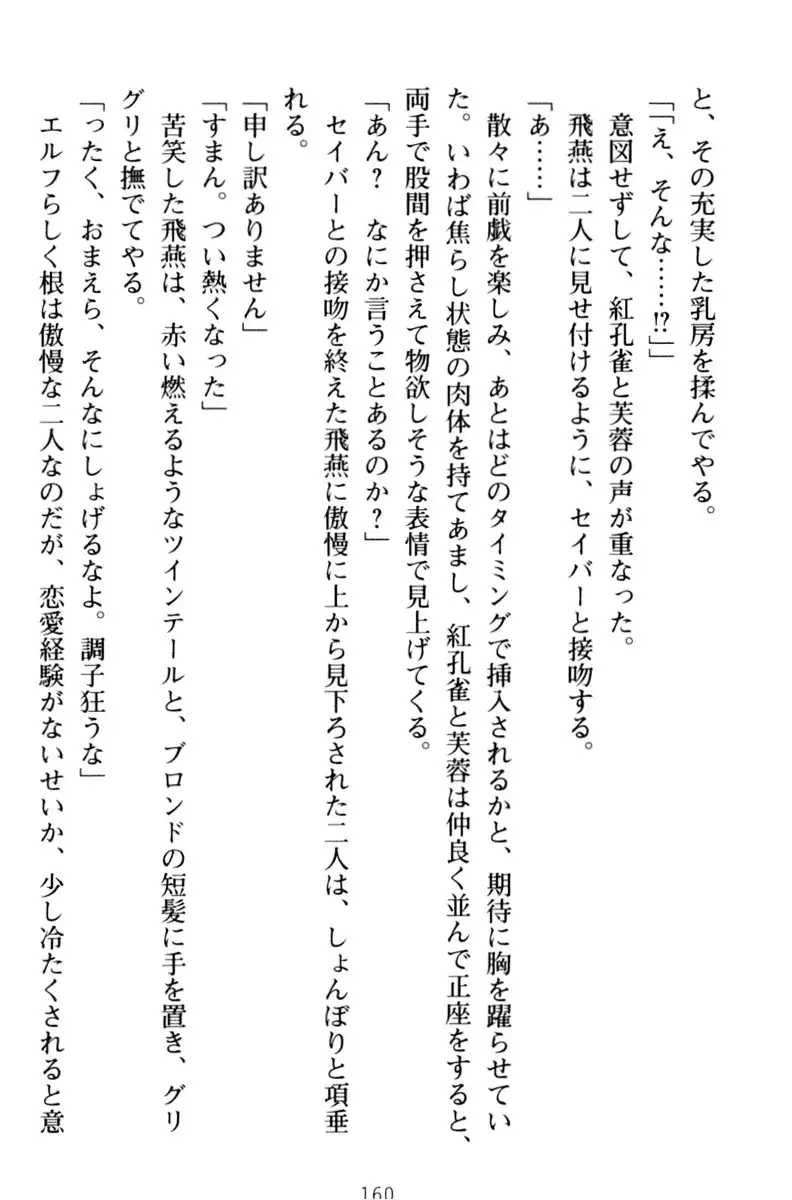 と、その充実した乳房を揉んでやる。
「「え、そんな……!?」」
意図せずして、紅孔雀と芙蓉の声が重なった。
飛燕は二人に見せ付けるように、セイバーと接吻する。
「あ……」
散々に前戯を楽しみ、あとはどのタイミングで挿入されるかと、期待に胸を躍らせてい
た。いわば焦らし状態の肉体を持てあまし、紅孔雀と芙蓉は仲良く並んで正座をすると、
両手で股間を押さえて物欲しそうな表情で見上げてくる。
「あん？　なにか言うことあるのか？」
セイバーとの接吻を終えた飛燕に傲慢に上から見下ろされた二人は、しょんぼりと項垂
れる。
「申し訳ありません」
「すまん。つい熱くなった」
苦笑した飛燕は、赤い燃えるようなツインテールと、ブロンドの短髪に手を置き、グリ
グリと撫でてやる。
「ったく、おまえら、そんなにしょげるなよ。調子狂うな」
エルフらしく根は傲慢な二人なのだが、恋愛経験がないせいか、少し冷たくされると意
160